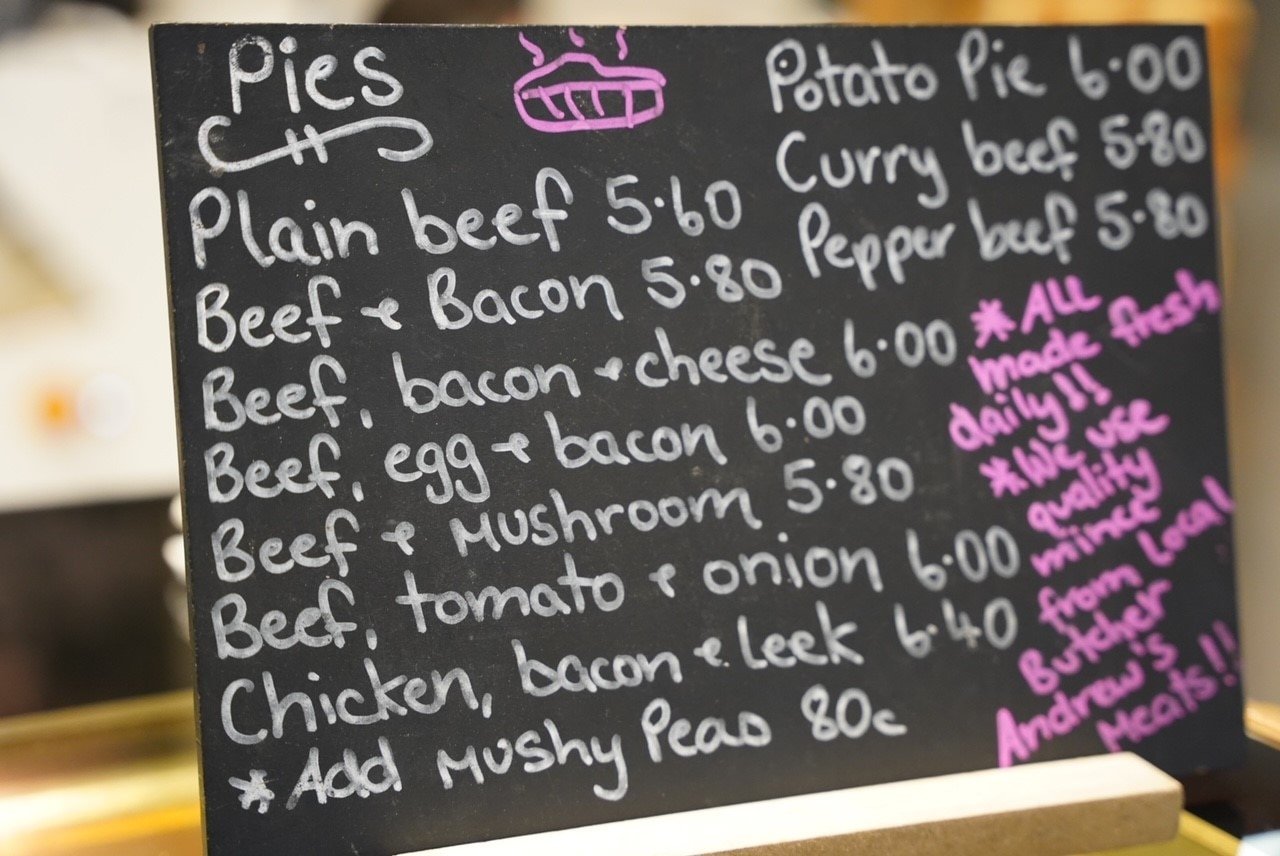 Pies
Plain beef 5.60
Beef & Bacon 5.80
Beef, bacon & cheese 6.00
Beef, egg & bacon 6.00
Beef & Mushroom 5.80
Beef, tomato & onion 6.00
Chicken, bacon & Leek 6.40
* Add Mushy Peas 80c
Potato Pie 6.00
Curry beef 5.80
Pepper beef 5.80
* ALL
made fresh
daily!!
* We use
quality
mince
from Local
Butcher
Andrew's
Meats!!